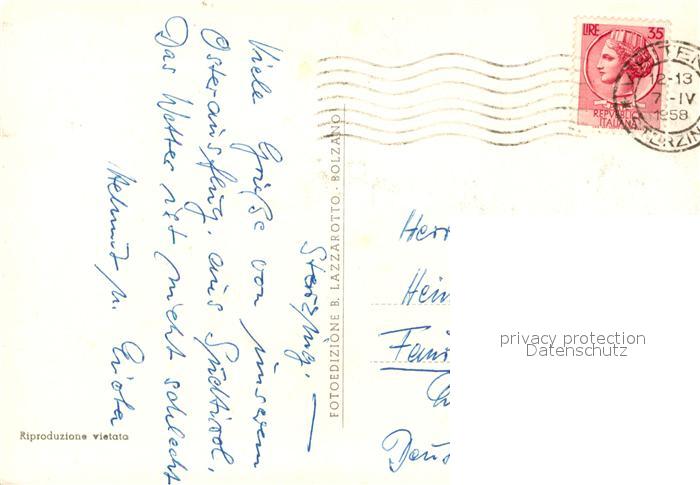 Sterzing. —
Viele Grüße von unserem
Osterausflug, aus Südtirol.
Das Wetter ist nicht schlecht
Helmut u.
FOTOEDIZIONE B. LAZZAROTTO - BOLZANO
Riproduzione vietata
LIRE 35
REPVBBLICA
ITALIANA
12-13
7-IV
1958
Herr
Hein
privacy protection
Datenschutz
Deus